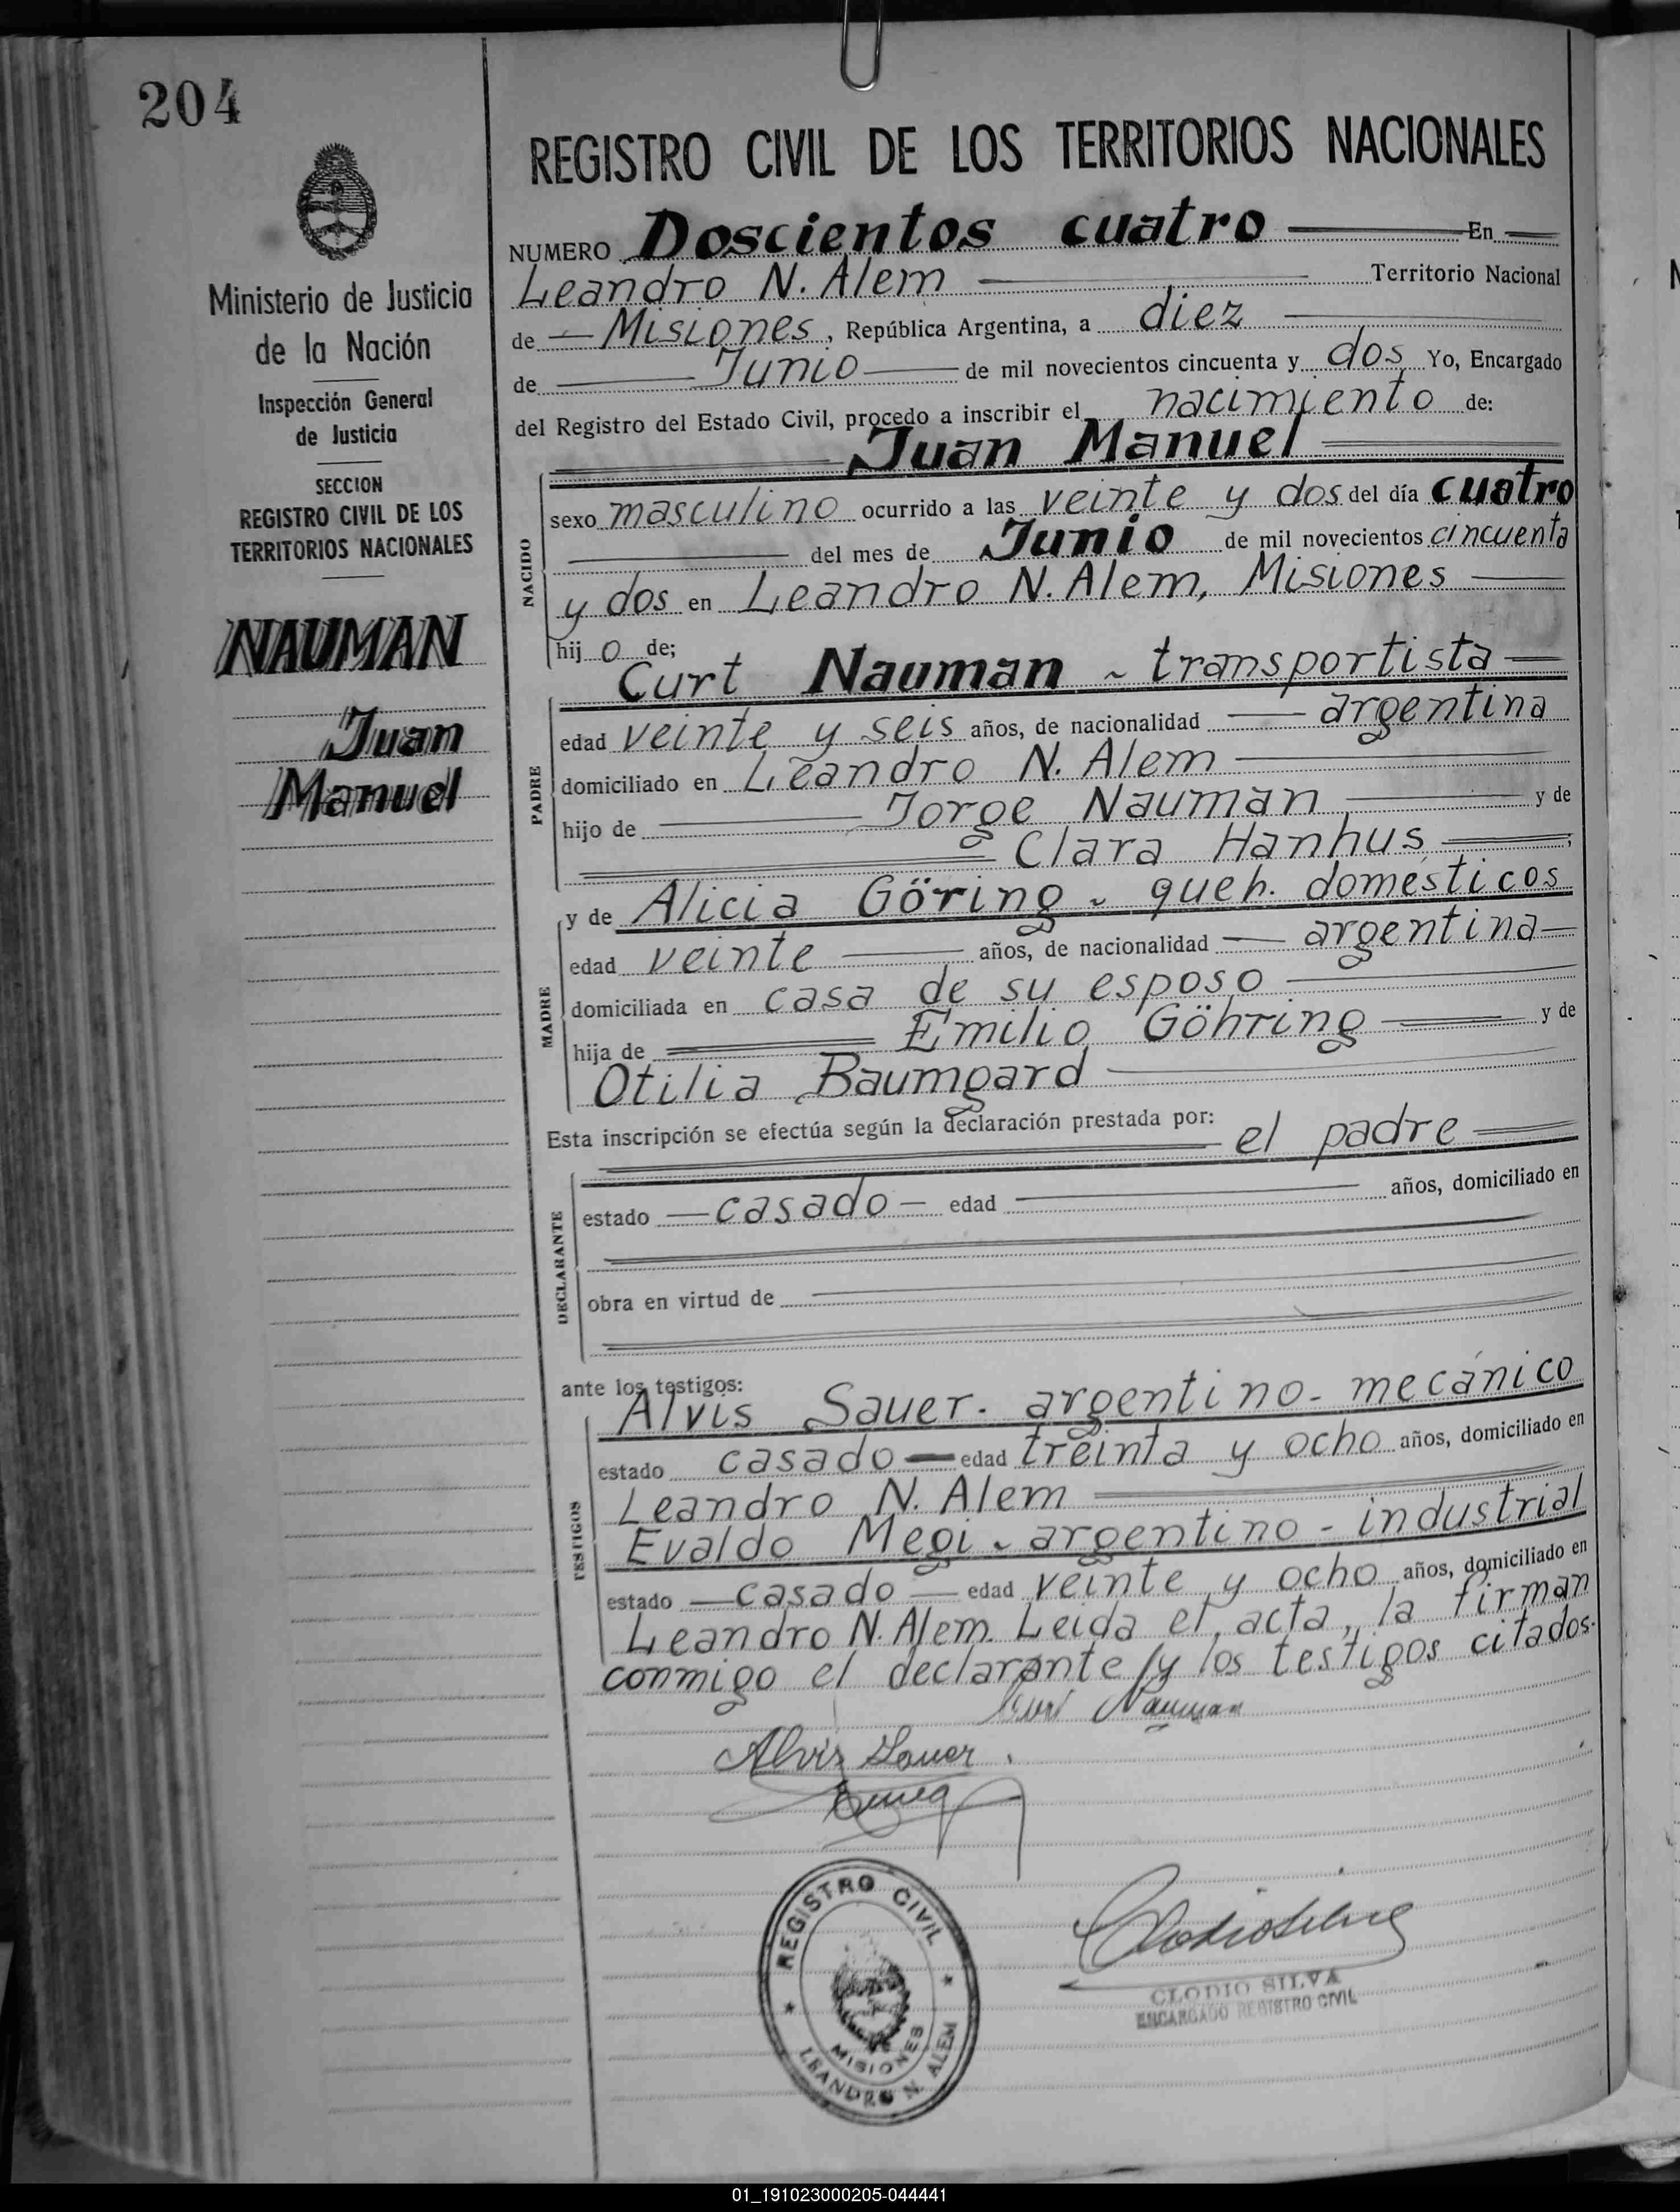 204
Ministerio de Justicia
de la Nación
Inspección General
de Justicia
SECCION
REGISTRO CIVIL DE LOS
TERRITORIOS NACIONALES
NAUMAN
Juan
Manuel
REGISTRO CIVIL DE LOS TERRITORIOS NACIONALES
NUMERO Doscientos cuatro En
Leandro N. Alem Territorio Nacional
de Misiones, República Argentina, a diez
de Junio de mil novecientos cincuenta y dos Yo, Encargado
del Registro del Estado Civil, procedo a inscribir el nacimiento de:
Juan Manuel
NACIDO
sexo masculino ocurrido a las veinte y dos del día cuatro
del mes de Junio de mil novecientos cincuenta
y dos en Leandro N. Alem, Misiones
hij o de;
Curt Nauman - transportista
PADRE
edad veinte y seis años, de nacionalidad argentina
domiciliado en Leandro N. Alem
hijo de Jorge Nauman y de
Clara Hanhus;
y de Alicia Göring - queh. domésticos
MADRE
edad veinte años, de nacionalidad argentina
domiciliada en casa de su esposo
hija de Emilio Göhring y de
Otilia Baumgard
Esta inscripción se efectúa según la declaración prestada por:
el padre
DECLARANTE
estado casado edad años, domiciliado en
obra en virtud de
ante los testigos:
Alvis Sauer. argentino - mecánico
TESTIGOS
estado casado edad treinta y ocho años, domiciliado en
Leandro N. Alem
Evaldo Megi - argentino - industrial
estado casado edad veinte y ocho años, domiciliado en
Leandro N. Alem. Leida el acta, la firman
conmigo el declarante y los testigos citados.
Curt Nauman
Alvis Sauer
REGISTRO CIVIL
MISIONES
LEANDRO N. ALEM
Clodio Silva
CLODIO SILVA
ENCARGADO REGISTRO CIVIL
01_191023000205-044441